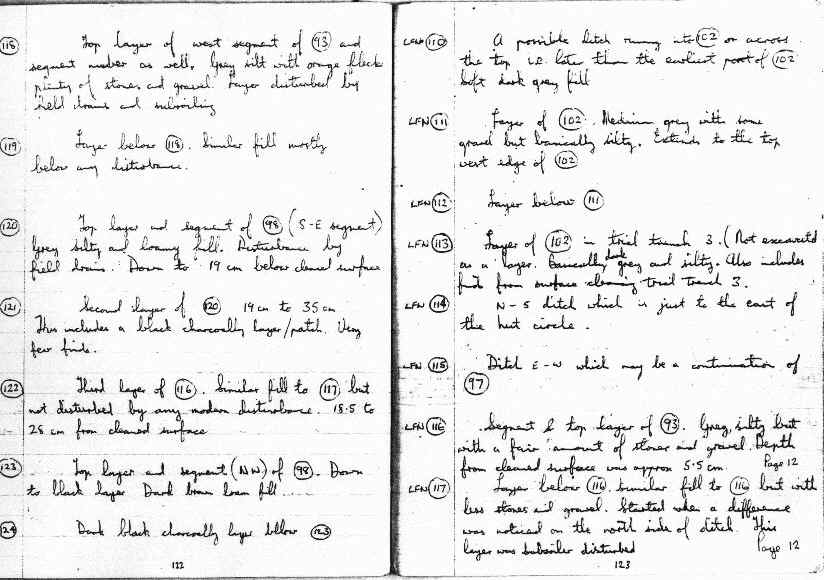 118 Top layer of west segment of 93 and
segment number as well. Grey silt with orange flecks
plenty of stones and gravel. Layer disturbed by
field drains and subsoiling
119 Layer below 118. Similar fill mostly
below any disturbance.
120 Top layer and segment of 98 (S-E segment)
Grey silty and loamy fill. Disturbance by
field drains. Down to 19 cm below cleaned surface
121 Second layer of 120 19 cm to 35 cm
This includes a black charcoally layer/patch. Very
few finds.
122 Third layer of 116. Similar fill to 117 but
not disturbed by any modern disturbance. 18.5 to
28 cm from cleaned surface
123 Top layer and segment (NW) of 98. Down
to black layer Dark brown loam fill
124 Dark black charcoally layer below 123
122
LFN 110 A possible ditch running into 102 or across
the top i.e. later than the earliest part of 102
Soft dark grey fill
LFN 111 Layer of 102. Medium grey with some
gravel but basically silty. Extends to the top
west edge of 102
LFN 112 Layer below 111
LFN 113 Layer of 102 in trial trench 3. (Not excavated
as a layer. Basically dark grey and silty. Also includes
finds from surface cleaning trial trench 3.
LFN 114 N-S ditch which is just to the east of
the hut circle.
LFN 115 Ditch E-W which may be a continuation of
97
LFN 116 Segment & top layer of 93. Grey, silty but
with a fair amount of stones and gravel. Depth
from cleaned surface was approx 5.5 cm Page 12
LFN 117 Layer below 116. Similar fill to 116 but with
less stones and gravel. Started when a difference
was noticed on the north side of ditch. This
layer was subsoiler disturbed Page 12
123